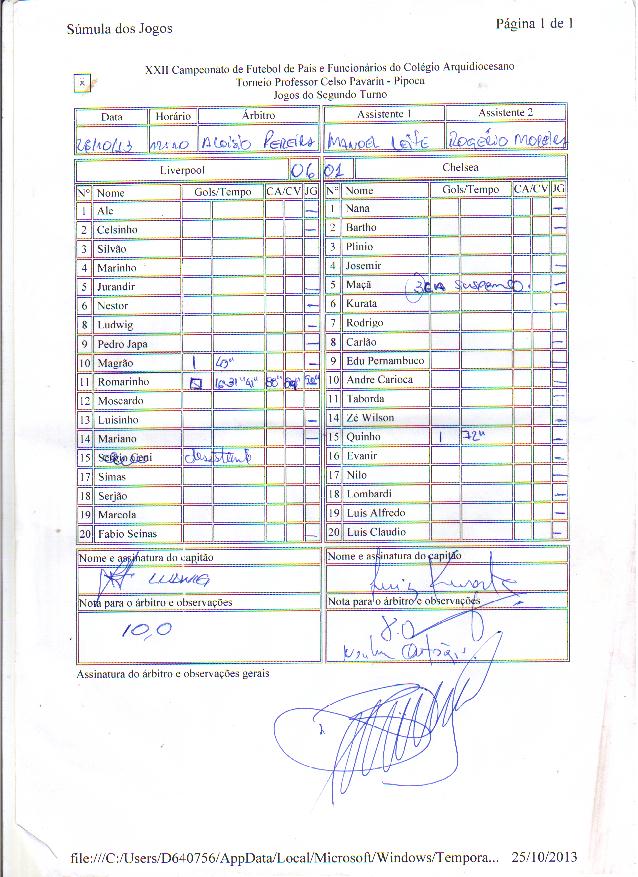 Súmula dos Jogos Página 1 de 1
XXII Campeonato de Futebol de Pais e Funcionários do Colégio Arquidiocesano
Torneio Professor Celso Pavarin - Pipoca
Jogos do Segundo Turno
Data Horário Árbitro Assistente 1 Assistente 2
26/10/13 Aloisio Pereira Manoel Leite Rogério Moreira
Liverpool 06 01 Chelsea
Nº Nome Gols/Tempo CA/CV JG Nº Nome Gols/Tempo CA/CV JG
1 Ale 1 Nana
2 Celsinho 2 Bartho
3 Silvão 3 Plinio
4 Marinho 4 Josemir
5 Jurandir 5 Maçã suspenso.
6 Nestor 6 Kurata
8 Ludwig 7 Rodrigo
9 Pedro Japa 8 Carlão
10 Magrão 1 9 Edu Pernambuco
11 Romarinho 10 Andre Carioca
12 Moscardo 11 Taborda
13 Luisinho 14 Zé Wilson
14 Mariano 15 Quinho 1 72"
15 16 Evanir
17 Simas 17 Nilo
18 Serjão 18 Lombardi
19 Marcola 19 Luis Alfredo
20 Fabio Seinas 20 Luis Claudio
Nome e assinatura do capitão Nome e assinatura do capitão
Ludwig
Nota para o árbitro e observações Nota para o árbitro e observações
10,0
Assinatura do árbitro e observações gerais
file:///C:/Users/D640756/AppData/Local/Microsoft/Windows/Tempora... 25/10/2013